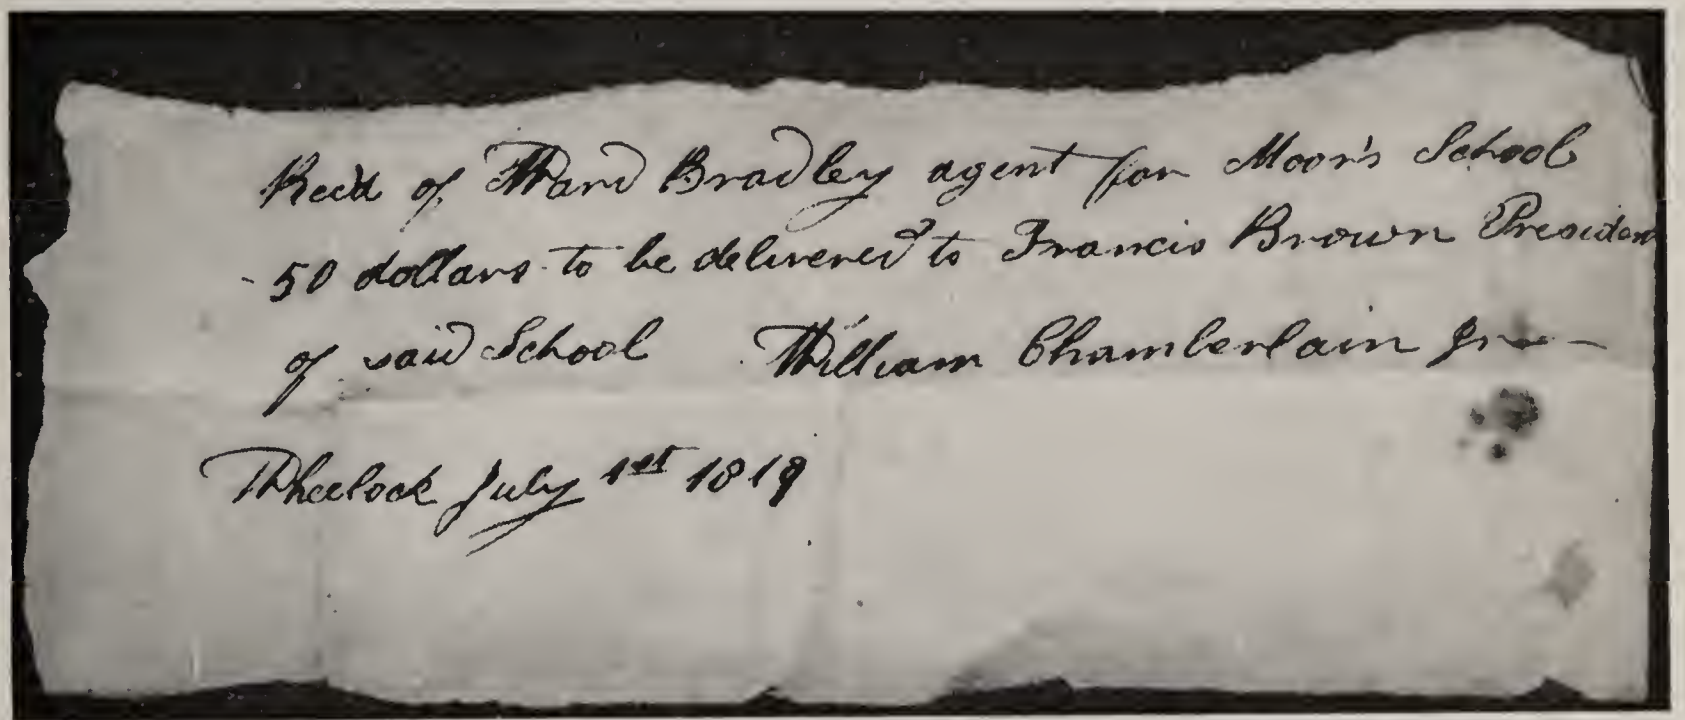 Recd of Ward Bradley agent for Moor's School
50 dollars to be delivered to Francis Brown President
of said School William Chamberlain Jr
Wheelock July 1st 1819